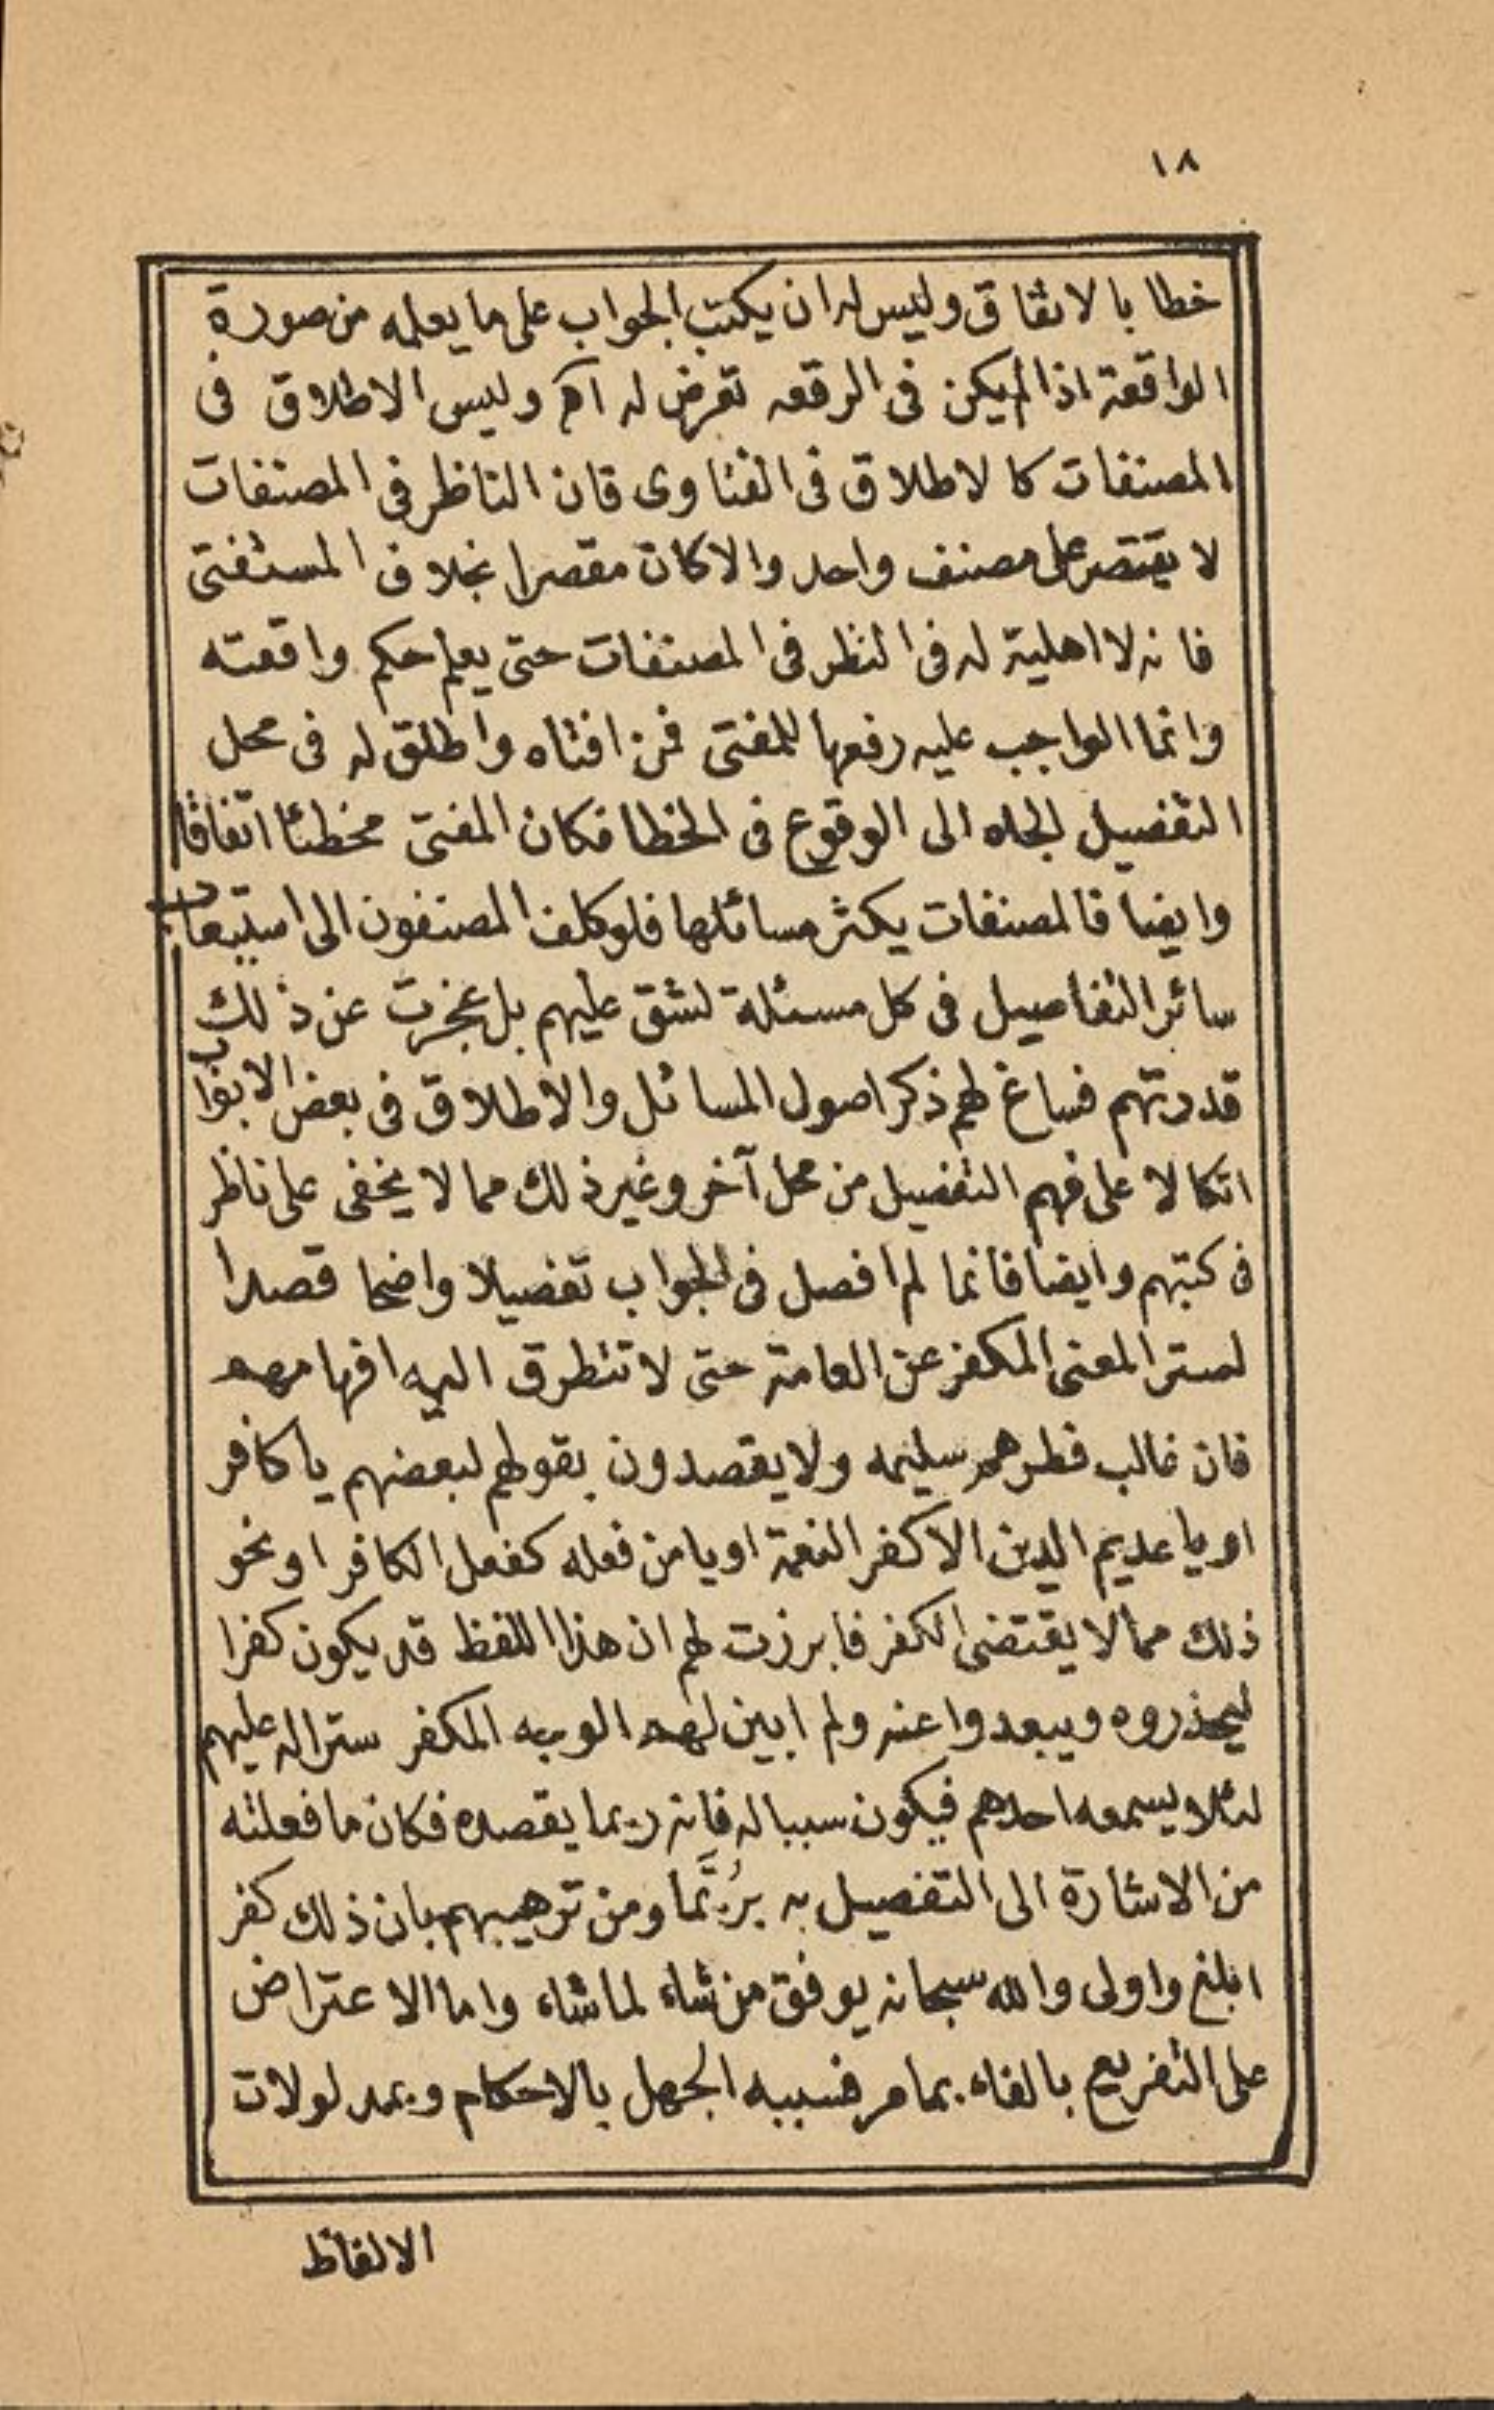 ١٨
خطا بالاتفاق وليس له ان يكتب الجواب على ما يعلمه من صورة
الواقعة اذا لم يكن فى الرقعه تعرض له اﻫ وليس الاطلاق فى
المصنفات كالاطلاق فى الفتاوى فان الناظر فى المصنفات
لا يقتصر على مصنف واحد والا كان مقصرا بخلاف المستفتى
فانه لا اهلية له فى النظر فى المصنفات حتى يعلم حكم واقعته
وانما الواجب عليه رفعها للمفتى فمن افتاه واطلق له فى محل
التفصيل الجاه الى الوقوع فى الخطا فكان المفتى مخطئا اتفاقا
وايضا فالمصنفات يكثر مسائلها فلو كلف المصنفون الى استيعاب
سائر التفاصيل فى كل مسئلة لشق عليهم بل عجزت عن ذلك
قدرتهم فساغ لهم ذكر اصول المسائل والاطلاق فى بعض الابواب
اتكالا على فهم التفصيل من محل آخر وغير ذلك مما لا يخفى على ناظر
فى كتبهم وايضا فانما لم افصل فى الجواب تفصيلا واضحا قصدا
لستر المعنى المكفر عن العامة حتى لا تتطرق اليه افهامهم
فان غالب فطرهم سليمه ولا يقصدون بقولهم لبعضهم يا كافر
او يا عديم الدين الا كفر النعمة او يا من فعله كفعل الكافر او نحو
ذلك مما لا يقتضى الكفر فابرزت لهم ان هذا اللفظ قد يكون كفرا
ليحذروه ويبعدوا عنه ولم ابين لهم الوجه المكفر سترا له عليهم
لئلا يسمعه احدهم فيكون سببا له فانه ربما يقصده فكان ما فعلته
من الاشارة الى التفصيل به بِرُبَّما ومن ترهيبهم بان ذلك كفر
ابلغ واولى والله سبحانه يوفق من شاء لما شاء واما الاعتراض
على التفريع بالفاء بما مر فسببه الجهل بالاحكام وبمدلولات
الالفاظ